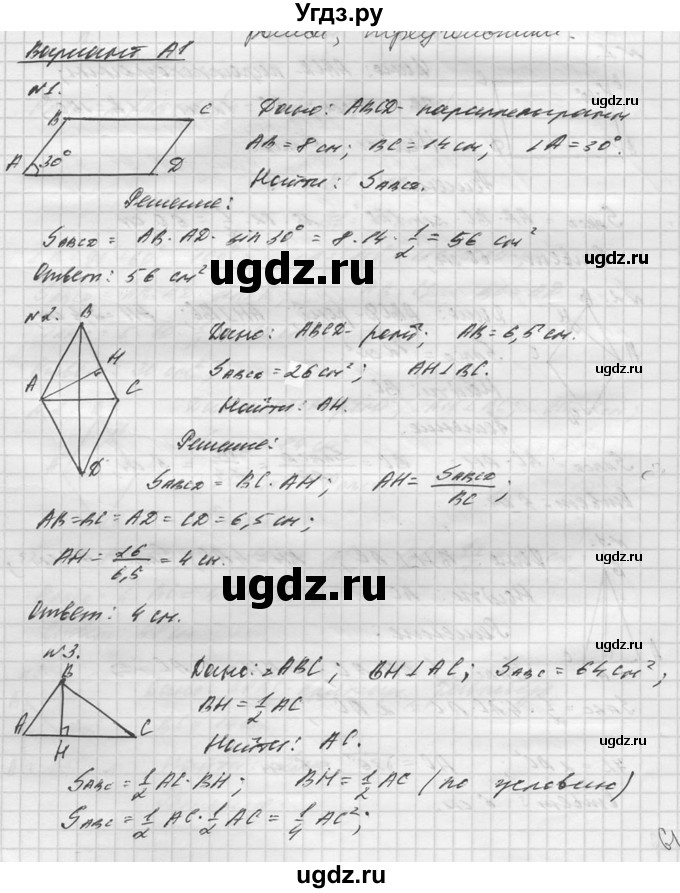 Угдз.ру
ромба, треугольника.
Вариант А1
№1.
B C A D 30°
Дано: ABCD - параллелограмм
AB = 8 см; BC = 14 см; ∠A = 30°.
Найти: S_ABCD.
Решение:
S_ABCD = AB · AD · sin 30° = 8 · 14 · 1/2 = 56 см²
Ответ: 56 см²
№2.
B H A C D
Дано: ABCD - ромб; AB = 6,5 см.
S_ABCD = 26 см²; AH ⊥ BC.
Найти: AH.
Решение:
S_ABCD = BC · AH; AH = S_ABCD/BC;
AB = BC = AD = CD = 6,5 см;
AH = 26/6,5 = 4 см.
Ответ: 4 см.
№3.
B A H C
Дано: △ABC; BH ⊥ AC; S_ABC = 64 см²;
BH = 1/2 AC
Найти: AC.
S_ABC = 1/2 AC · BH; BH = 1/2 AC (по условию)
S_ABC = 1/2 AC · 1/2 AC = 1/4 AC²;
61
ugdz.ru
ugdz.ru
ugdz.ru
ugdz.ru
ugdz.ru
ugdz.ru
ugdz.ru
ugdz.ru
ugdz.ru
ugdz.ru
ugdz.ru
ugdz.ru